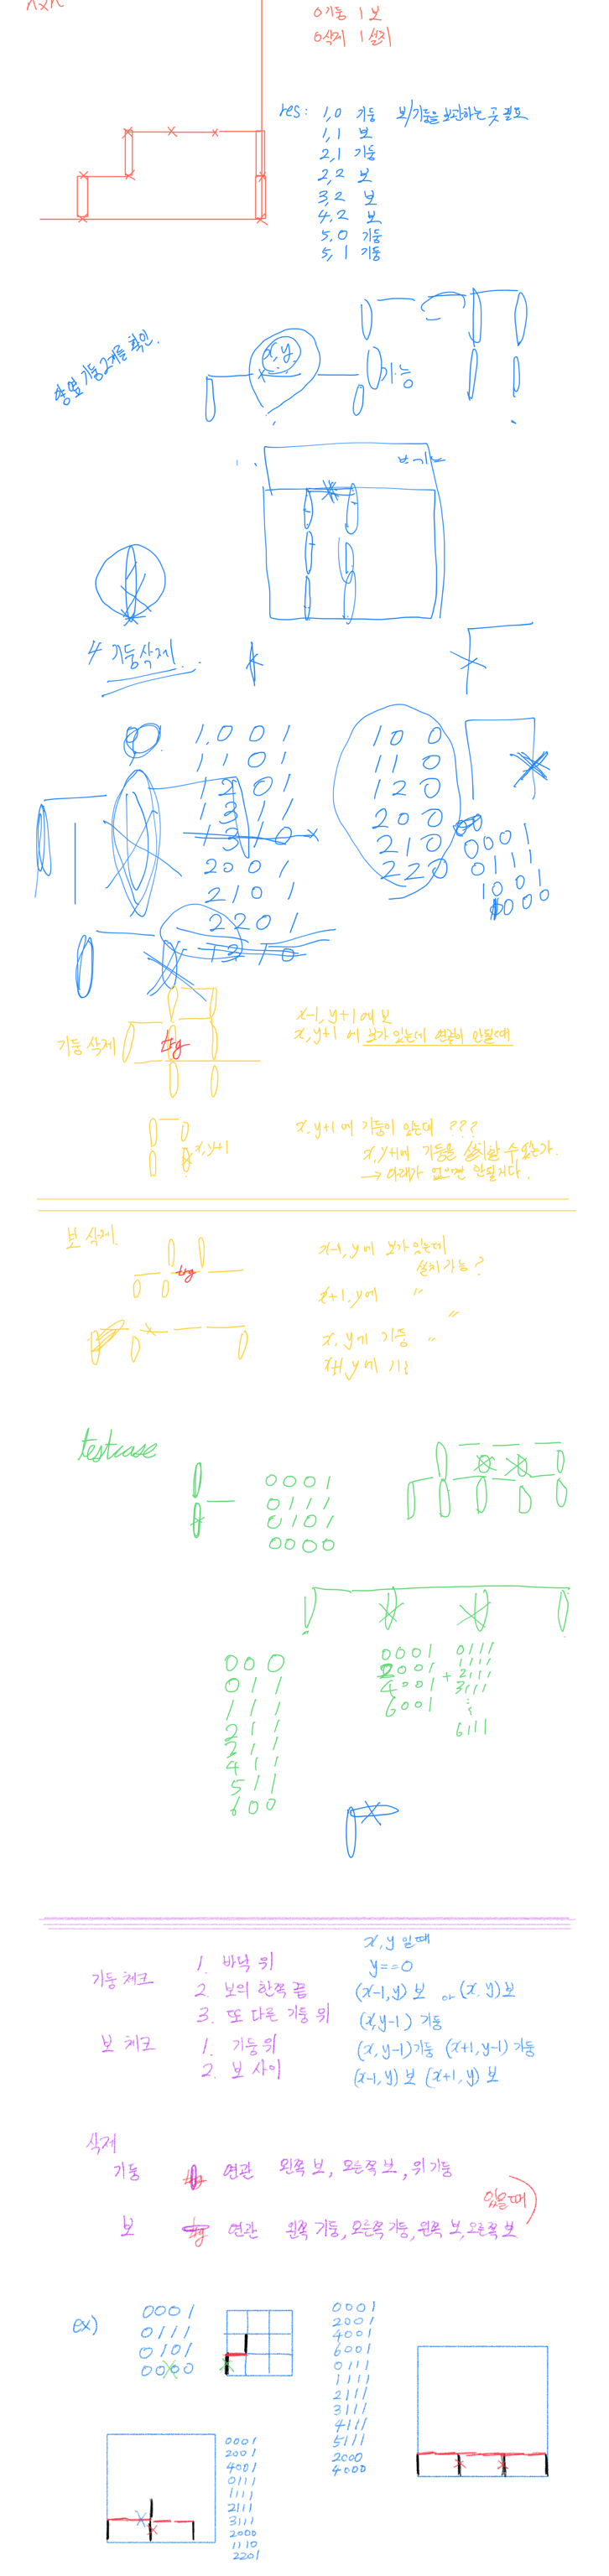 nxn
0 기둥 1 보
0 삭제 1 설치
res: 1,0 기둥 보/기둥을 보관하는 곳 필요
1,1 보
2,1 기둥
2,2 보
3,2 보
4,2 보
5,0 기둥
5,1 기둥
양옆 기둥 2개를 확인.
x,y
가능
4 기둥삭제..
1,0 0 1
1 1 0 1
1 2 0 1
1 3 1 1
1 3 1 0
2 0 0 1
2 1 0 1
2 2 0 1
1 2 1 0
1 0 0
1 1 0
1 2 0
2 0 0
2 1 0
2 2 0
0 0 0 1
0 1 1 1
1 0 0 1
0 0 0
기둥 삭제
trg
x-1, y+1 에 보
x, y+1 에 보가 있는데 연결이 안될때
x, y+1
x, y+1 에 기둥이 있는데 ???
x, y+1에 기둥을 설치할 수 있는가.
→ 아래가 없으면 안될거다.
보 삭제
trg
x-1, y에 보가 있는데
설치 가능?
x+1, y에 "
"
x, y에 기둥 "
x+1, y에 기둥
testcase
0 0 0 1
0 1 1 1
0 1 0 1
0 0 0 0
0 0 0
0 1 1
1 1 1
2 1 1
2 1 1
4 1 1
5 1 1
6 0 0
0 0 0 1
2 0 0 1
4 0 0 1
6 0 0 1
+
0 1 1 1
1 1 1 1
2 1 1 1
3 1 1 1
6 1 1 1
x, y 일때
기둥 체크
1. 바닥 위 y==0
2. 보의 한쪽 끝 (x-1,y) 보 or (x, y) 보
3. 또 다른 기둥 위 (x,y-1) 기둥
보 체크
1. 기둥 위 (x, y-1) 기둥 (x+1, y-1) 기둥
2. 보 사이 (x-1, y) 보 (x+1, y) 보
삭제
기둥 trg 연관 왼쪽 보, 오른쪽 보, 위 기둥
있을때
보 trg 연관 왼쪽 기둥, 오른쪽 기둥, 왼쪽 보, 오른쪽 보
ex)
0 0 0 1
0 1 1 1
0 1 0 1
0 0 0 0
0 0 0 1
2 0 0 1
4 0 0 1
6 0 0 1
0 1 1 1
1 1 1 1
2 1 1 1
3 1 1 1
4 1 1 1
5 1 1 1
2 0 0 0
4 0 0 0
0 0 0 1
2 0 0 1
4 0 0 1
0 1 1 1
1 1 1 1
2 1 1 1
3 1 1 1
2 0 0 0
1 1 1 0
2 2 0 1